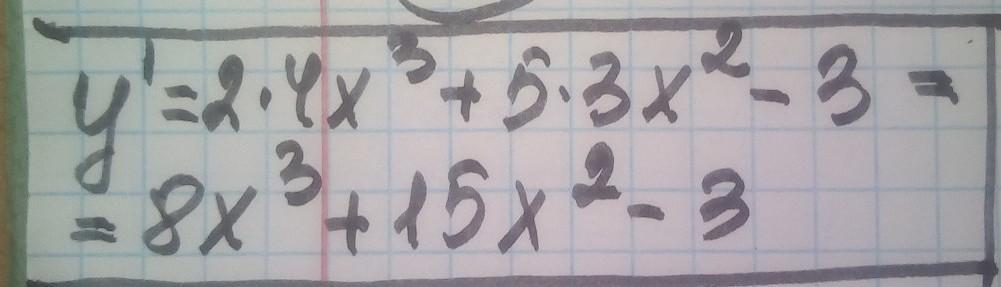 y' = 2·4x³ + 5·3x² - 3 =
= 8x³ + 15x² - 3